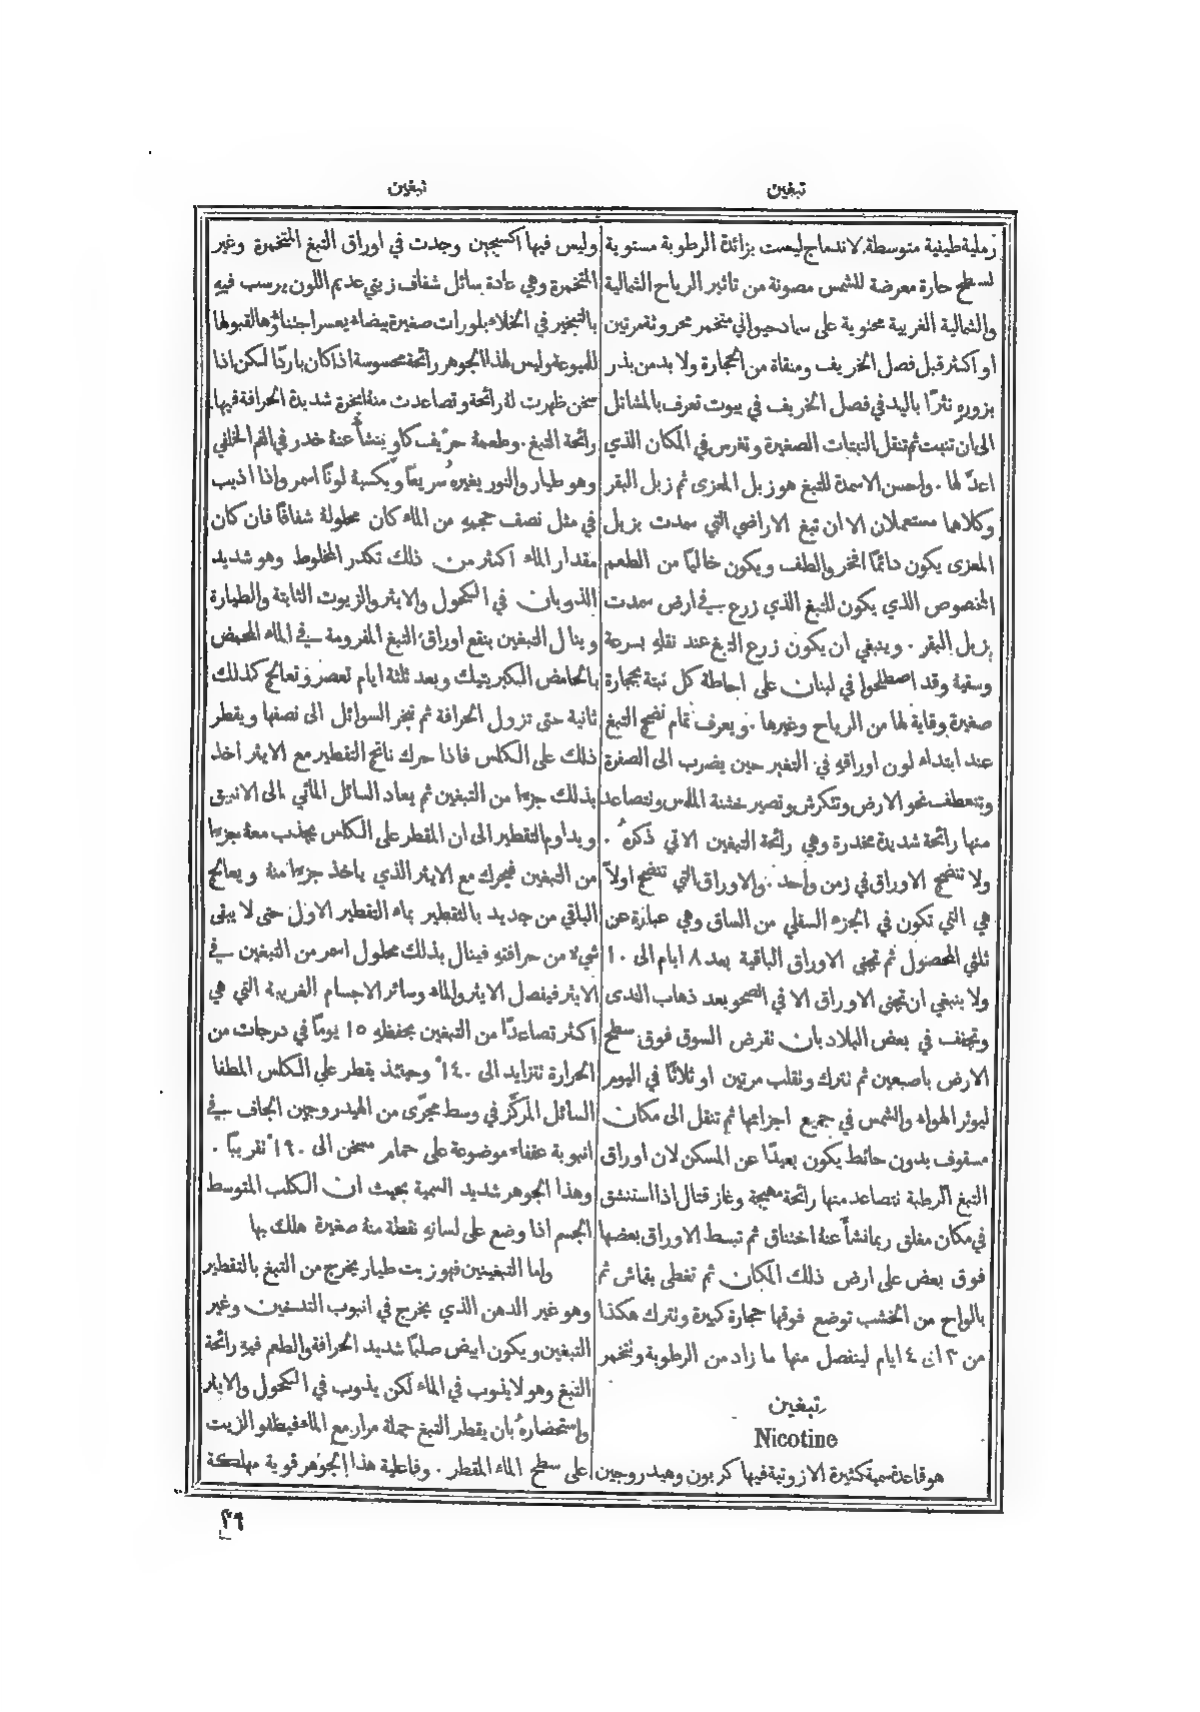 تبغين
تبغين
رملية طيفية متوسطة الاندماج ليست بزائدة الرطوبة مستوية
لسطح حارة معرضة للشمس مصونة من تاثير الرياح الشمالية
والشمالية الغربية محتوية على سماد حيواني متخمر محروثة مرتين
او اكثر قبل فصل الخريف ومنقاة من الحجارة ولا بد من بذر
بزوره نثرًا باليد في فصل الخريف في بيوت تعرف بالمشاتل
الى ان تنبت ثم تنقل النبتات الصغيرة وتغرس في المكان الذي
اعدّ لها . واحسن الاسمدة للتبغ هو زبل المعزى ثم زبل البقر
وكلاهما مستعملان الا ان تبغ الاراضي التي سمدت بزبل
المعزى يكون دائمًا افخر والطف ويكون خاليًا من الطعم
المخصوص الذي يكون للتبغ الذي زرع في ارض سمدت
بزبل البقر . وينبغي ان يكون زرع التبغ عند نقله بسرعة
وسقيه وقد اصطلحوا في لبنان على احاطة كل نبتة بحجارة
صغيرة وقاية لها من الرياح وغيرها . ويعرف تمام نضج التبغ
عند ابتداء لون اوراقه في التغير حين يضرب الى الصفرة
وتنعطف نحو الارض وتتكرش وتصير خشنة الملمس وتتصاعد
منها رائحة شديدة مخدرة وهي رائحة التبغين الاتي ذكرهُ .
ولا تنضج الاوراق في زمن واحد . والاوراق التي تنضج اولاً
هي التي تكون في الجزء السفلي من الساق وهي عبارة عن
ثلثي المحصول ثم تجنى الاوراق الباقية بعد ٨ ايام الى ١٠
ولا ينبغي ان تجنى الاوراق الا في الصحو بعد ذهاب الندى
وتجفف في بعض البلاد بان تفرض السوق فوق سطح
الارض باصبعين ثم تترك وتقلب مرتين او ثلاثًا في اليوم
ليوثر الهواء والشمس في جميع اجزائها ثم تنقل الى مكان
مسقوف بدون حائط يكون بعيدًا عن المسكن لان اوراق
التبغ الرطبة تتصاعد منها رائحة مهيجة وغاز قتال اذا استنشق
في مكان مغلق ربما نشأ عنهُ اختناق ثم تبسط الاوراق بعضها
فوق بعض على ارض ذلك المكان ثم تغطى بقماش ثم
بالواح من الخشب توضع فوقها حجارة كبيرة وتترك هكذا
من ٣ الى ٤ ايام لينفصل منها ما زاد من الرطوبة وتتخمر
تبغين
Nicotine
هو قاعدة سمية كثيرة الازوتية فيها كربون وهيدروجين
وليس فيها اكسيجين وجدت في اوراق التبغ المتخمرة وغير
المتخمرة وهي عادة سائل شفاف زيتي عديم اللون يرسب فيه
بالتبخير في الخلاء بلورات صغيرة بيضاء يعسر اجتناؤها لقبولها
للميوعة وليس لهذا الجوهر رائحة محسوسة اذا كان باردًا لكن اذا
سخن ظهرت لهُ رائحة وتصاعدت منهُ ابخرة شديدة الحرافة فيها
رائحة التبغ . وطعمهُ حريف كاوٍ ينشأ عنهُ خدر في الفم الخلفي
وهو طيار والنور يغيرهُ سريعًا ويكسبهُ لونًا اسمر واذا اذيب
في مثل نصف حجمهِ من الماء كان محلولهُ شفافًا فان كان
مقدار الماء اكثر من ذلك تكدر المخلوط وهو شديد
الذوبان في الكحول والايثر والزيوت الثابتة والطيارة
وينال التبغين بنقع اوراق التبغ المفرومة في الماء المحمض
بالحامض الكبريتيك وبعد ثلثة ايام تعصر وتعالج كذلك
ثانية حتى تزول الحرافة ثم تبخر السوائل الى نصفها ويقطر
ذلك على الكلس فاذا حرك ناتج التقطير مع الايثر اخذ
بذلك جزءا من التبغين ثم يعاد السائل المائي الى الانبيق
ويداوم التقطير الى ان المقطر على الكلس يجذب معهُ جزءا
من التبغين فيحرك مع الايثر الذي ياخذ جزءا منهُ ويعالج
الباقي من جديد بالتقطير بماء التقطير الاول حتى لا يبقى
شيء من حرافته فينال بذلك محلول اسمر من التبغين في
الايثر فينفصل الايثر والماء وسائر الاجسام الغريبة التي هي
اكثر تصاعدًا من التبغين بحفظه ١٥ يومًا في درجات من
الحرارة تتزايد الى ١٤٠° وحينئذ يقطر على الكلس المطفا
السائل المركّز في وسط مجرًى من الهيدروجين الجاف في
انبوبة عقفاء موضوعة على حمام مسخن الى ١٩٠° تقريبًا .
وهذا الجوهر شديد السمية بحيث ان الكلب المتوسط
الجسم اذا وضع على لسانه نقطة منهُ صغيرة هلك بها
واما التبغينين فهو زيت طيار يخرج من التبغ بالتقطير
وهو غير الدهن الذي يخرج في انبوب التدخين وغير
التبغين ويكون ابيض صلبًا شديد الحرافة والطعم فيه رائحة
التبغ وهو لا يذوب في الماء لكن يذوب في الكحول والايثر
واستحضارهُ بان يقطر التبغ جملة مرار مع الماء فيطفو الزيت
على سطح الماء المقطر . وفاعلية هذا الجوهر قوية مهلكة
٢٩